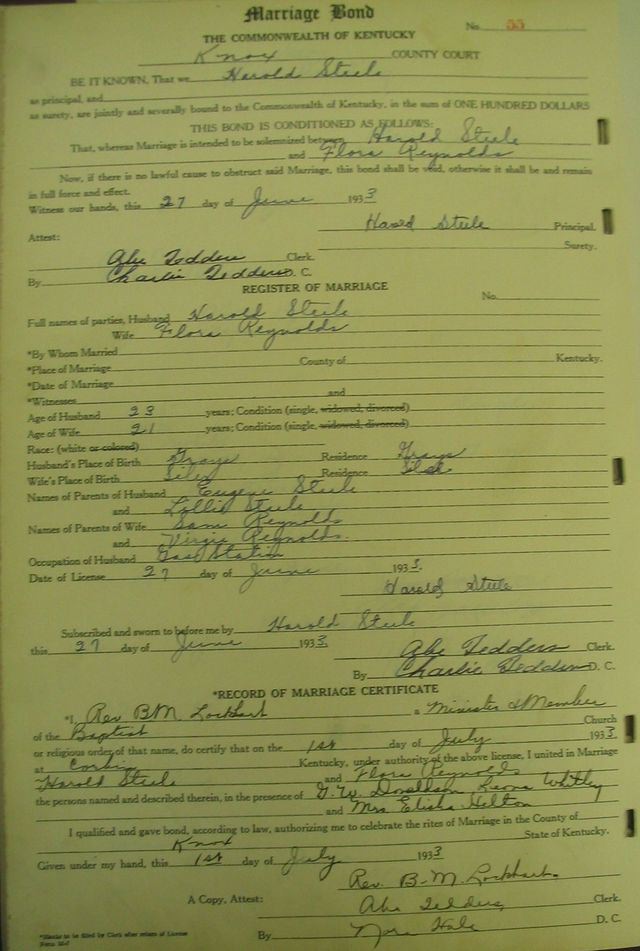 Marriage Bond
No. 55
THE COMMONWEALTH OF KENTUCKY
Knox COUNTY COURT
BE IT KNOWN, That we Harold Steele
as principal, and
as surety, are jointly and severally bound to the Commonwealth of Kentucky, in the sum of ONE HUNDRED DOLLARS
THIS BOND IS CONDITIONED AS FOLLOWS:
That, whereas Marriage is intended to be solemnized between Harold Steele
and Flora Reynolds
Now, if there is no lawful cause to obstruct said Marriage, this bond shall be void, otherwise it shall be and remain
in full force and effect.
Witness our hands, this 27 day of June 1933
Harold Steele Principal.
Attest: Surety.
Abe Tedders Clerk.
By Charlie Tedders D. C.
REGISTER OF MARRIAGE
No.
Full names of parties, Husband Harold Steele
Wife Flora Reynolds
*By Whom Married
*Place of Marriage County of Kentucky.
*Date of Marriage
*Witnesses and
Age of Husband 23 years; Condition (single, widowed, divorced)
Age of Wife 21 years; Condition (single, widowed, divorced)
Race: (white or colored)
Husband's Place of Birth Grays Residence Grays
Wife's Place of Birth Siler Residence
Names of Parents of Husband Eugene Steele
and Lollie Steele
Names of Parents of Wife Sam Reynolds
and Virgie Reynolds.
Occupation of Husband Gas Station
Date of License 27 day of June 1933.
Harold Steele
Subscribed and sworn to before me by Harold Steele
this 27 day of June 1933.
Abe Tedders Clerk.
By Charlie Tedders D. C.
*RECORD OF MARRIAGE CERTIFICATE
*I, Rev. B.M. Lockhart a Minister & Member
of the Baptist Church
or religious order of that name, do certify that on the 1st day of July 1933
at Corbin Kentucky, under authority of the above license, I united in Marriage
Harold Steele and Flora Reynolds
the persons named and described therein, in the presence of G.W. Donaldson, Whitley
and Mrs. Elisha Helton
I qualified and gave bond, according to law, authorizing me to celebrate the rites of Marriage in the County of
Knox State of Kentucky.
Given under my hand, this 1st day of July 1933
Rev. B-M. Lockhart.
A Copy, Attest: Abe Tedders, Clerk.
By Nora Hale D. C.
*Blanks to be filed by Clerk after return of License